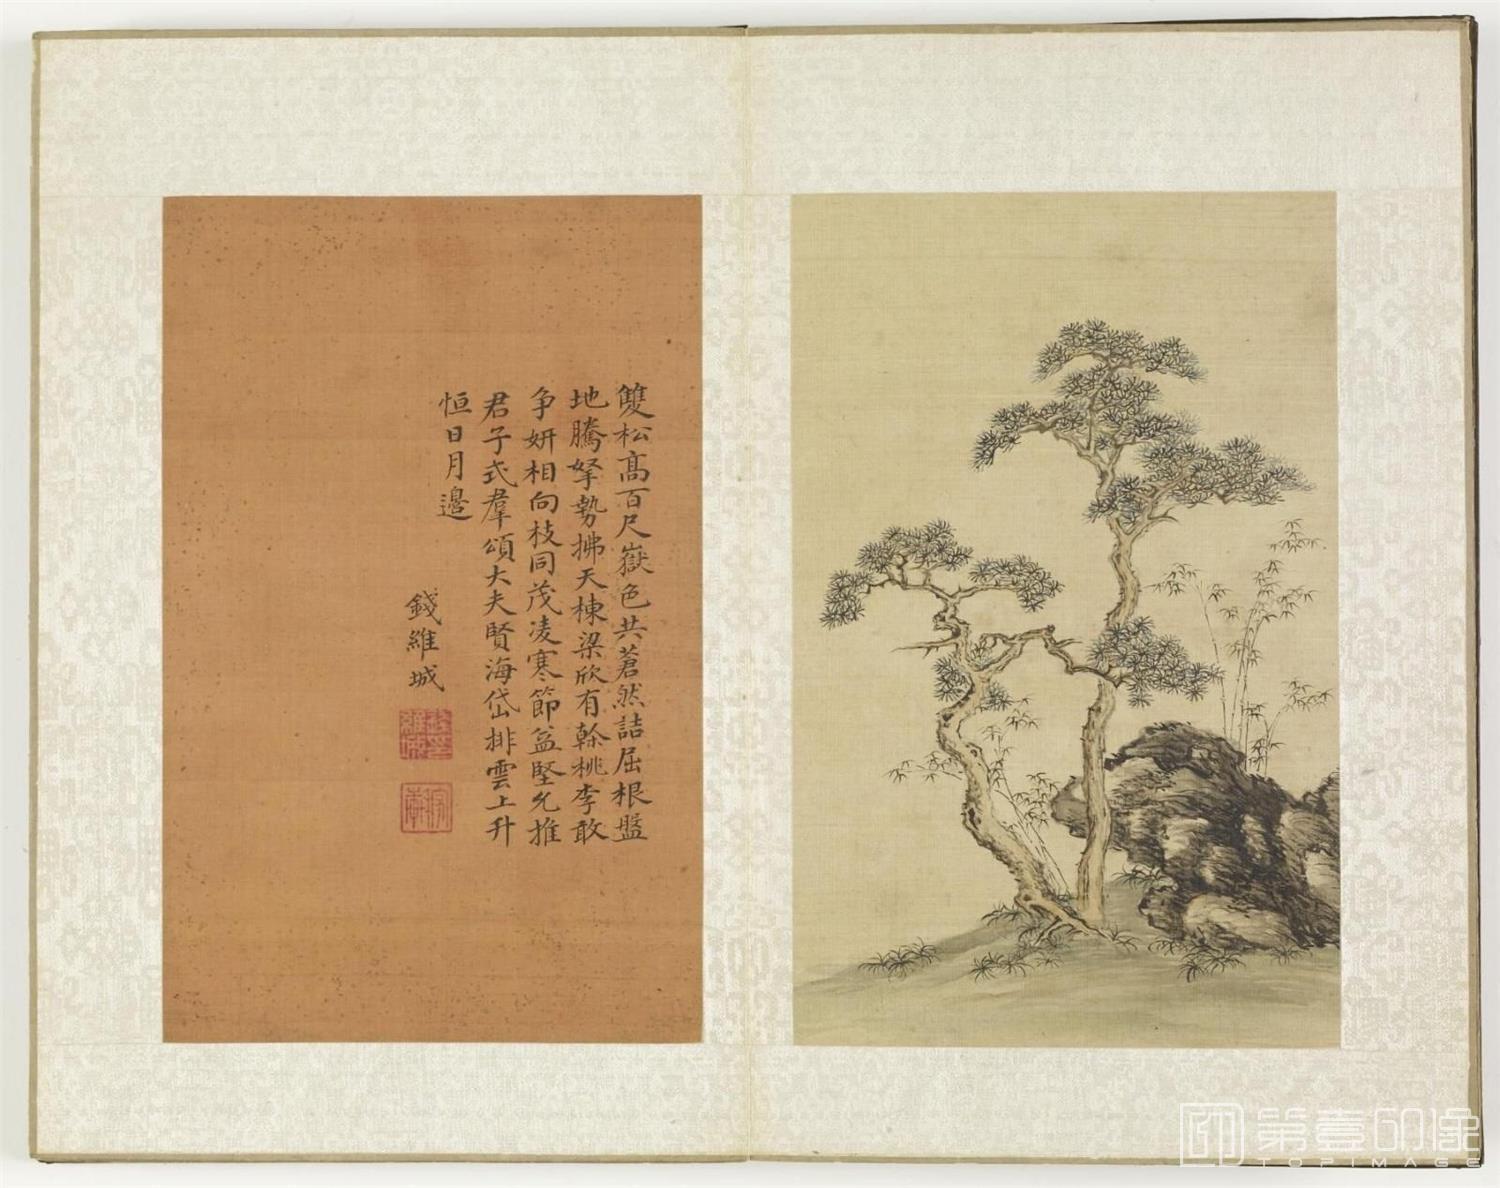 雙松高百尺嶽色共蒼然詰屈根盤
地騰拏勢拂天棟梁欣有榦桃李敢
爭妍相向枝同茂凌寒節益堅允推
君子式羣頌大夫賢海岱排雲上升
恒日月邊
錢維城
第壹印像
TOPIMAGE